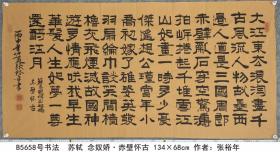 大江東去浪淘盡千
古風流人物故壘西
邊人道是三國周郎
赤壁亂石
山如畫一時多少豪
傑遙想公瑾當年小
喬初嫁了雄姿英發
羽扇綸巾談笑間
檣櫓灰飛煙滅故國神
遊多情應笑我早生
華髮人生如夢一尊
還酹江月
赤壁懷古
B5658号书法 苏轼 念奴娇·赤壁怀古 134×68cm 作者：张裕年